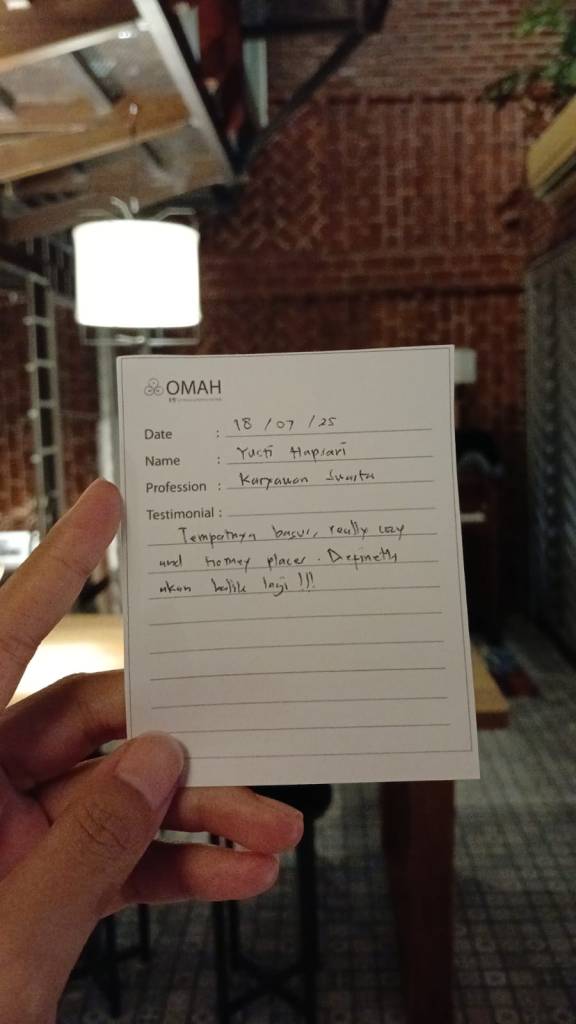 OMAH
Date : 18 / 07 / 25
Name : Yucti Hapsari
Profession : Karyawan Swasta
Testimonial :
Tempatnya bagus, really cozy
and homey places. Definetly
akan balik lagi !!!